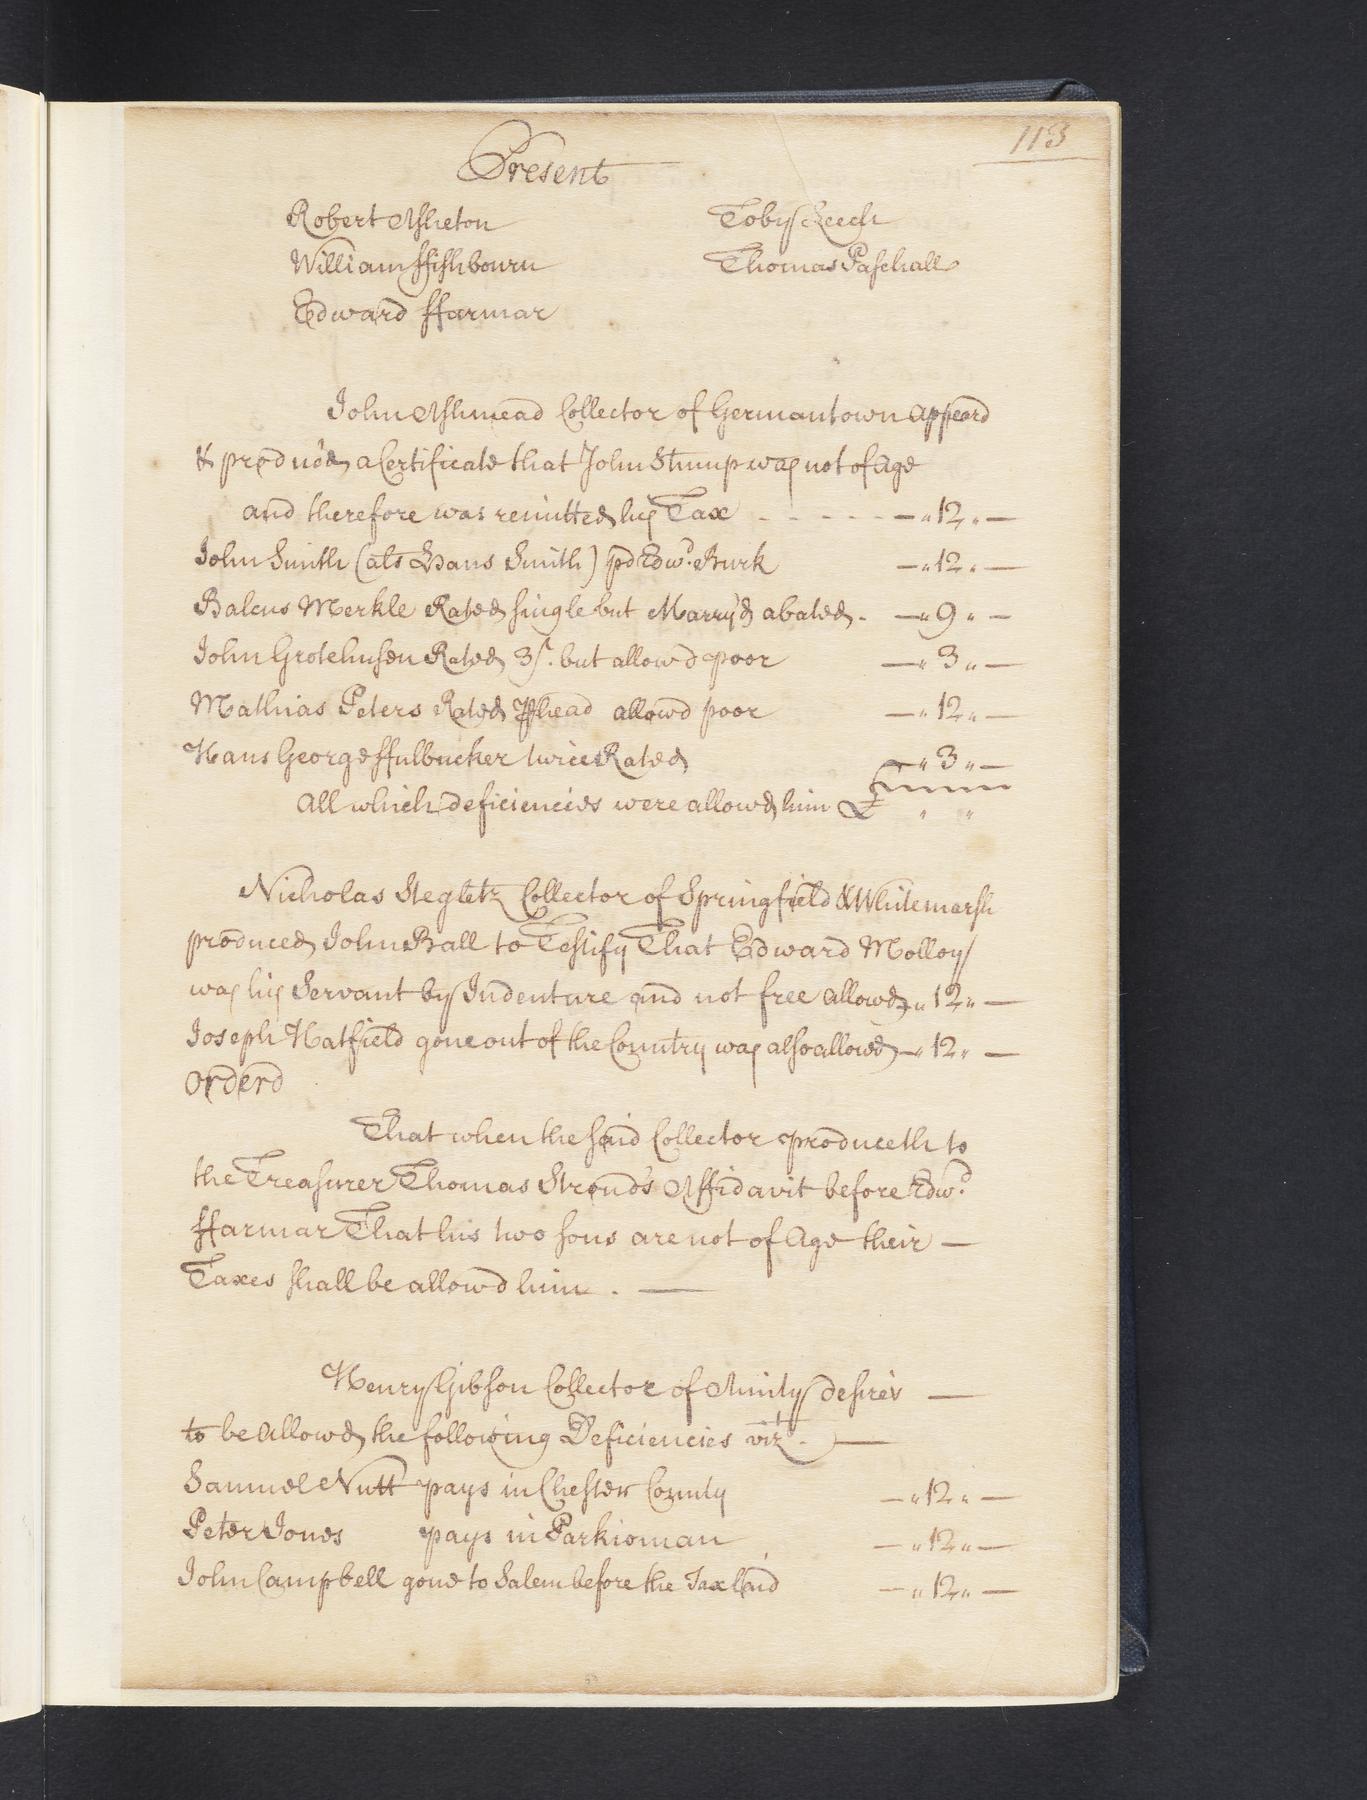 113
Present
Robert Asheton Toby Leech
William ffishbourn Thomas Paschall
Edward ffarmar
John Ashmead Collector of Germantown appeard
& produc'd a Certificate that John Stump was not of Age
and therefore was remitted his Tax - - - - - — " 12 " —
John Smith (als Hans Smith) pd Edwd. Burk — " 12 " —
Balcus Merkle Rated single but Marry'd abated. — " 9 " —
John Grotehusen Rated 3s. but allow'd poor — " 3 " —
Mathias Peters Rated P head allowd poor — " 12 " —
Hans George ffulbucker twice Rated — " 3 " —
All which deficiencies were allowd him £ " "
Nicholas Stegletz Collector of Springfield & Whitemarsh
produced John Ball to Testify That Edward Molloy
was his Servant by Indenture and not free allowd — " 12 " —
Joseph Hatfield gone out of the Country was also allow'd — " 12 " —
Orderd
That when the said Collector produceth to
the Treasurer Thomas Stroud's Affidavit before Edwd.
ffarmar That his two sons are not of Age their —
Taxes shall be allowd him . —
Henry Gibson Collector of Amity desires —
to be Allowd the following Deficiencies vizt. —
Samuel Nutt pays in Chester County — " 12 " —
Peter Jones pays in Parkioman — " 12 " —
John Campbell gone to Salem before the Tax laid — " 12 " —